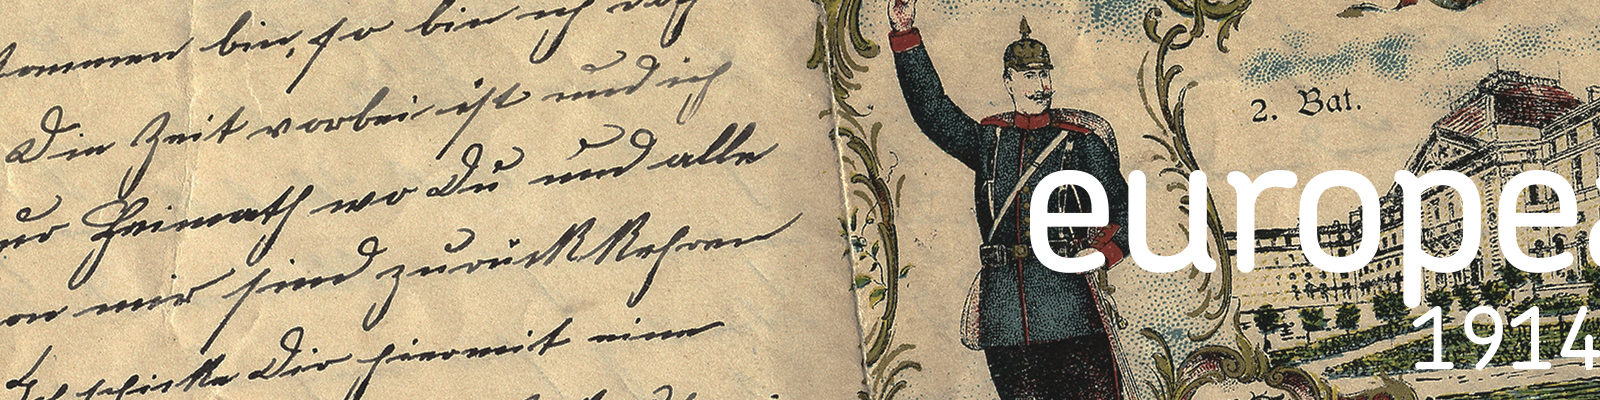 kommen bin, so bin ich doch
Die Zeit vorbei ist und ich
zur Heimath wo Du und alle
von mir sind zurückkehren
Ich schicke Dir hiermit eine
2. Bat.
europea
1914